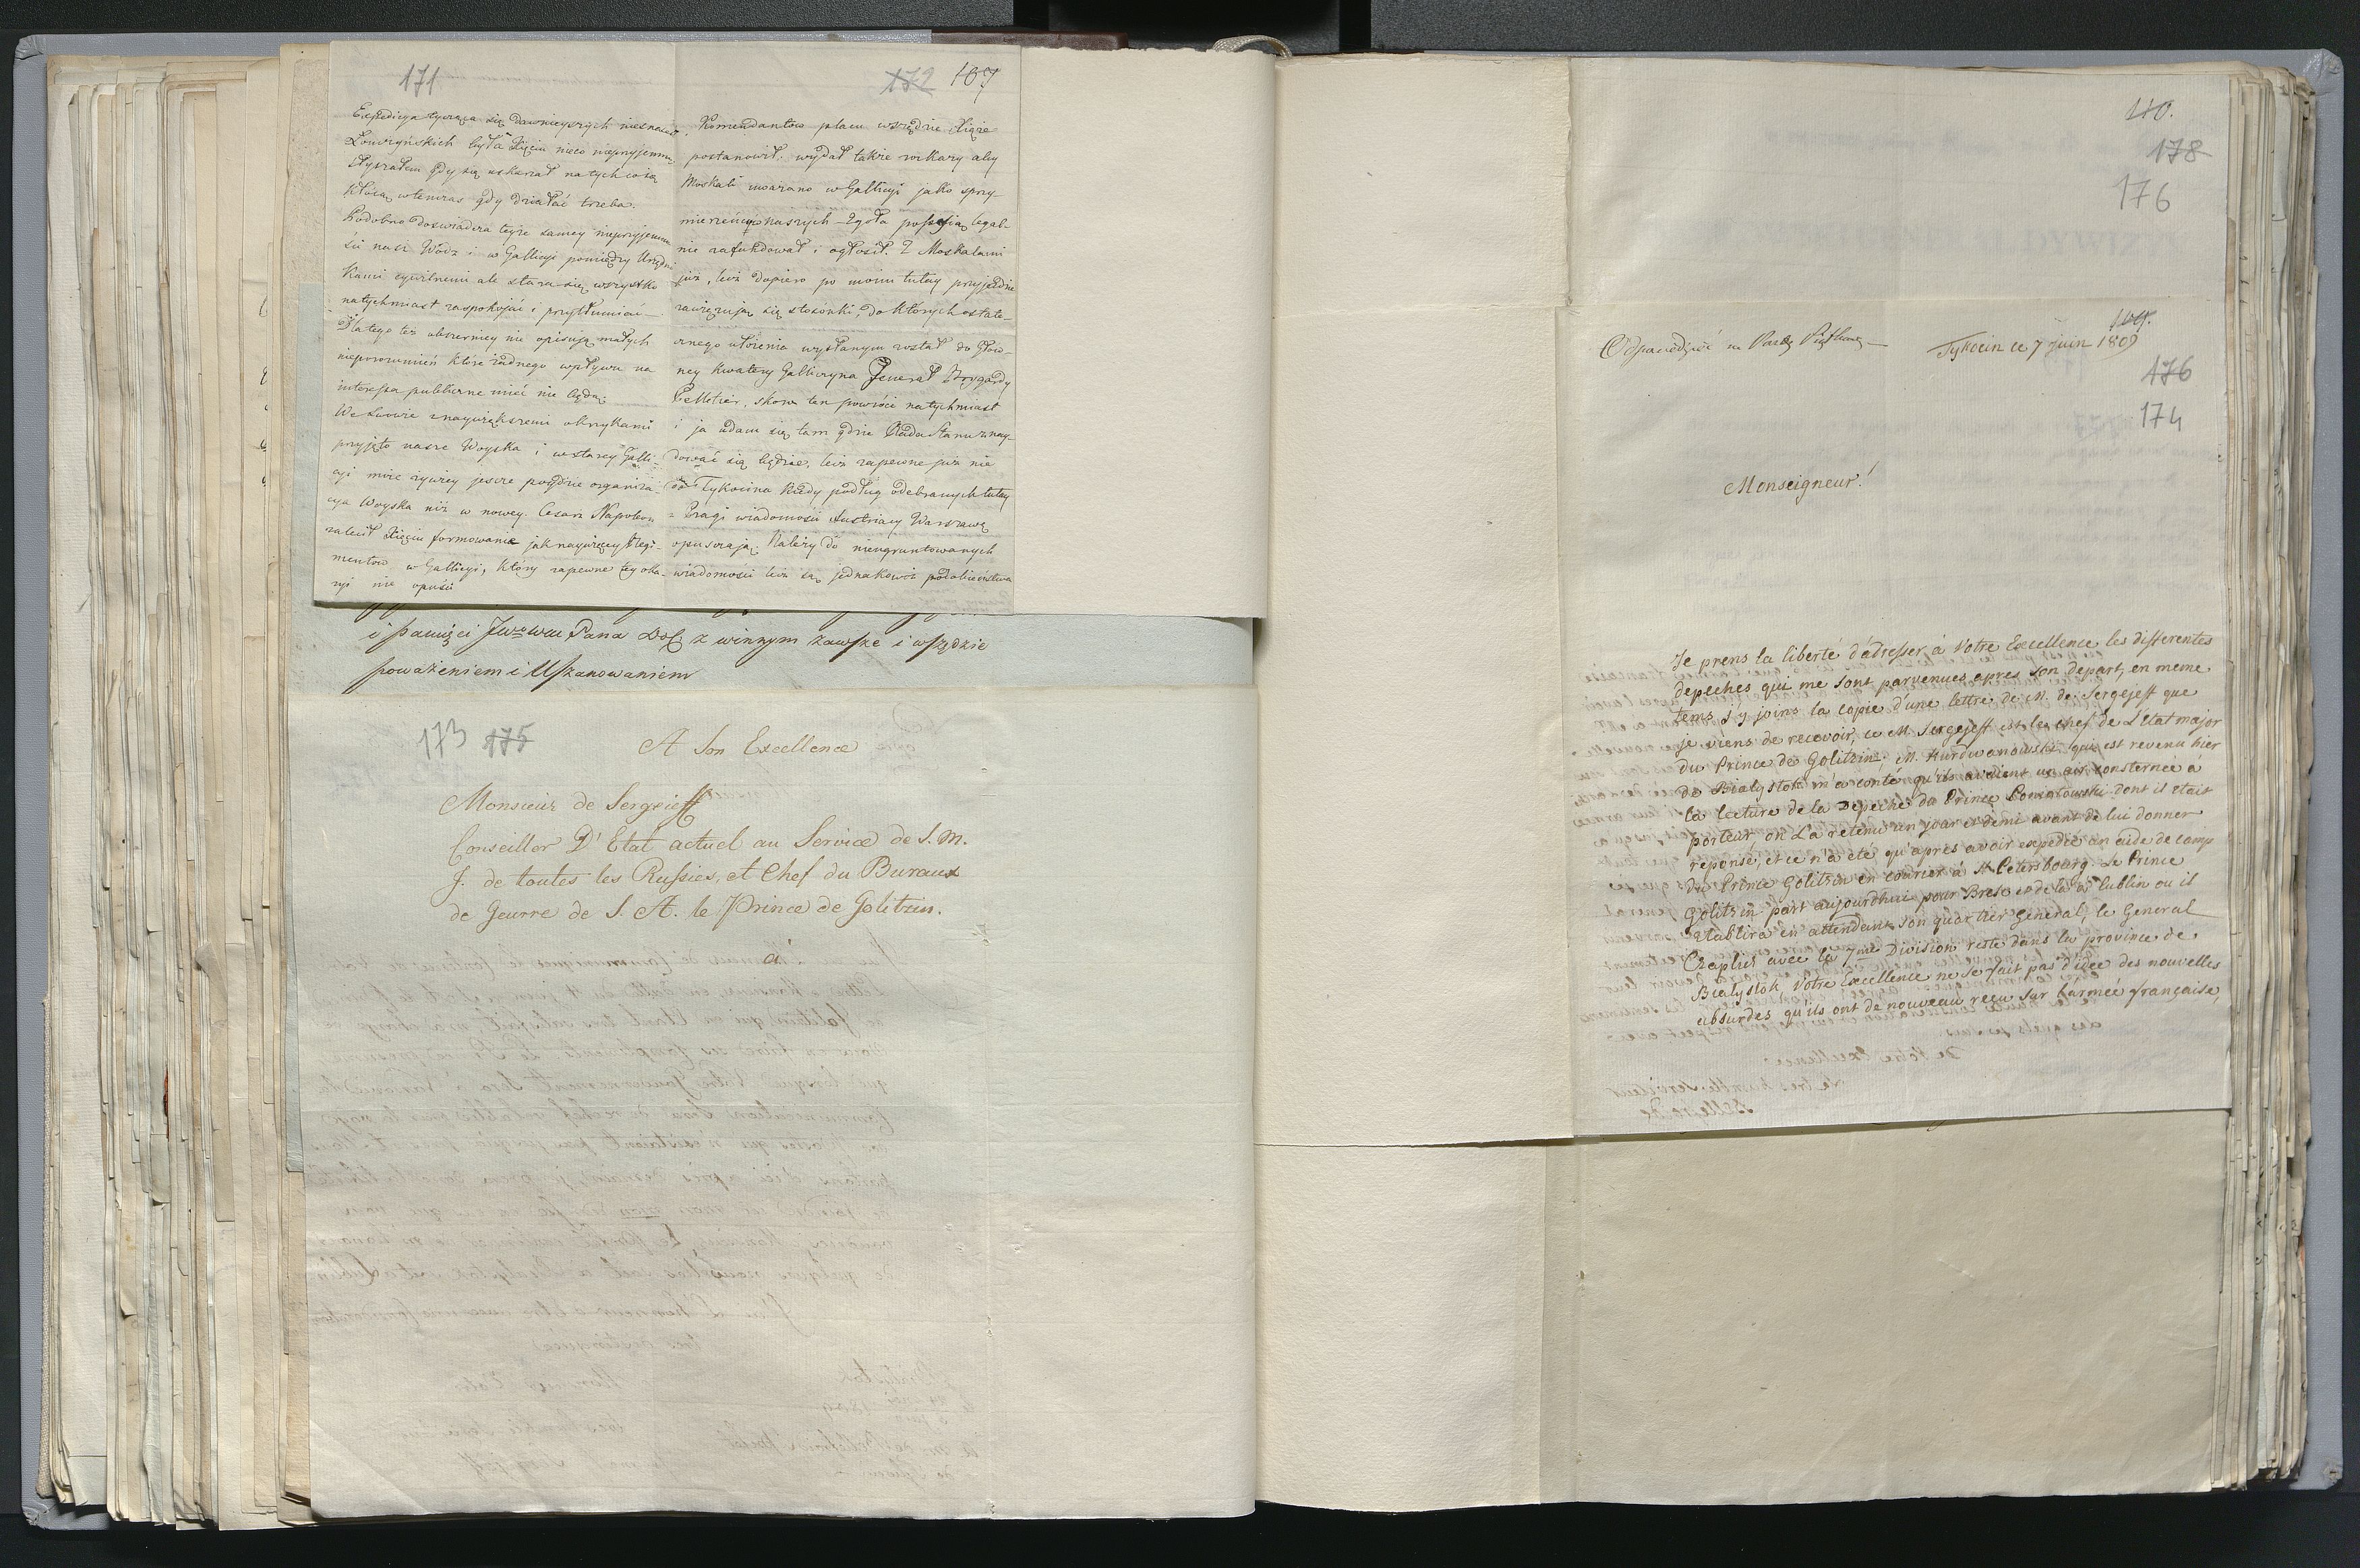 171
Expedicya tycząca się dawnieyszych niesnasek
Łowczyńskich była Xięciu nieco nieprzyjemną
słyszałem gdy się uskarżał na tych co się
kłócą wtenczas gdy działać trzeba.
Podobno doswiadcza teyże samey nieprzyjemno
ści nasz Wódz i w Gallicyi pomiędzy Urzędni
kami cywilnemi ale stara się wszystko
natychmiast zaspokajać i przytłumiać —
Dlatego też obszerniey nie opisuię małych
nieporozumień które żadnego wpływu na
interessa publiczne mieć nie będą.
We Lwowie z naywiększemi okrzykami
przyjęto nasze Woyska i w starey Galli-
cyi może żywiey jeszcze poydzie organiza-
cya Woyska niż w nowey. Cesarz Napoleon
zalecił Xięciu formowanie jak naywięcey Regi-
mentow w Gallicyi, który zapewne tey oka-
zyi nie opuści
172 107
Komendantow placu wszędzie Xiąże
postanowił. wydał także rozkazy aby
Moskali uważano w Gallicyi jako sprzy-
mierzeńców naszych — Zgoła possessią legal-
nie zafundował i ogłosił. Z Moskalami
już, lecz dopiero po moim tutay przyjeździe
zawięzują się stosonki, do których ostate-
cznego ułożenia wysłanym został do Głów-
ney Kwatery Gallicyna Jenerał Brygady
Pelletier, skoro ten powróci natychmiast
i ja udam się tam gdzie Rada Stanu znay-
dować się będzie, lecz zapewne już nie
do Tykocina kiedy podług odebranych tutay
z Pragi wiadomości Austriacy Warszawę
opuszczają. Należy do nieugruntowanych
wiadomości lecz są jednakowoż podobieństwa
i pamięci Jwo wu Pana Dob z winnym zawsze i wszędzie
poważeniem i Uszanowaniem
173 175
A Son Excellence
Monsieur de Sergeieff
Conseiller D'Etat actuel au Service de S. M.
J. de toutes les Russies, et Chef du Buraux
de Geurre de S. A. le Prince de Golitzin.
à
110.
178
176
Odpowiedzieć na Radzę
Tykocin ce 7 Juin 1809
109.
176
174
Monseigneur!
Je prens la liberté d'adresser à Votre Excellence les differentes
depeches qui me sont parvenues apres son depart, en meme
tems j'y joins la copie d'une lettre de M. de Sergejeff que
je viens de recevoir, ce M. Sergejeff est le chef de L'Etat major
du Prince de Golitzin; M. Hurdwanowski qui est revenu hier
de Bialystok m'a conté qu'ils avoient un air consternée à
la lecture de la Depeche du Prince Poniatowski dont il etait
porteur on L'a retenu un jour et demi avant de lui donner
reponse, et ce n'a été qu'apres avoir expedié un aide de camp
du Prince Golitzin en courier à St Petersbourg. Le Prince
Golitzin part aujourdhui pour Brest et de là à Lublin ou il
etablira en attendant son quartier general, le General
avec la 7me Division reste dans la province de
Bialystok, Votre Excellence ne se fait pas d'idee des nouvelles
absurdes qu'ils ont de nouveau reçu sur l'armée française,